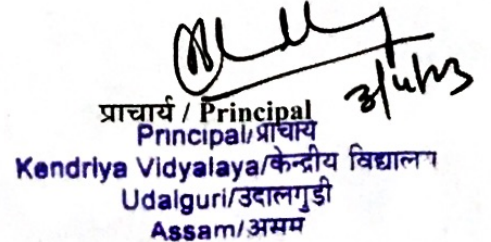 प्राचार्य / Principal
Principal/प्राचार्य
Kendriya Vidyalaya/केन्द्रीय विद्यालय
Udalguri/उदालगुड़ी
Assam/असम